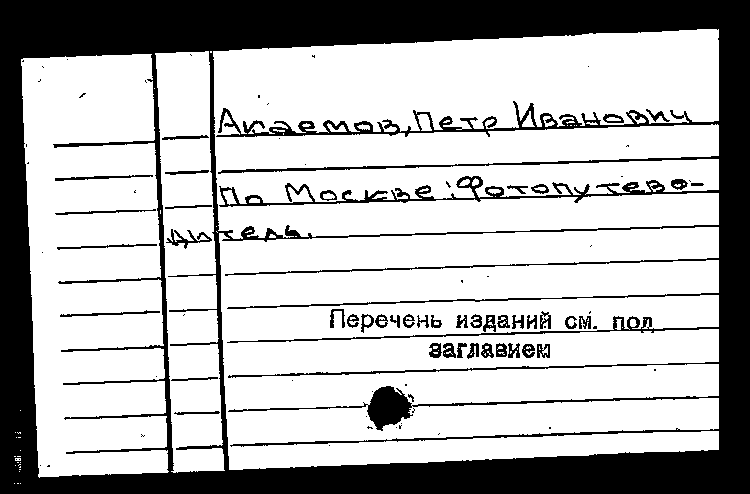 Акаемов, Петр Иванович
По Москве: Фотопутево-
дитель.
Перечень изданий см. под
заглавием